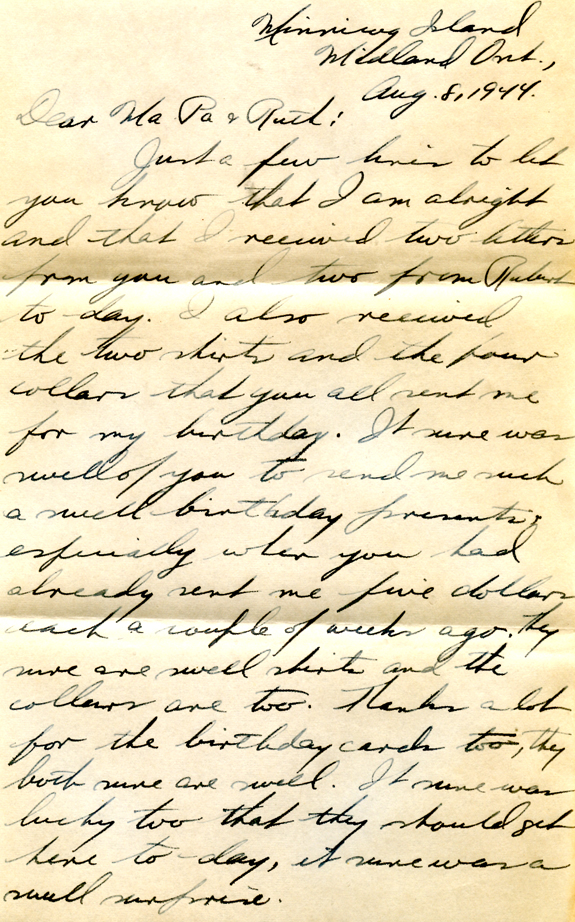 Minnicog Island
Midland Ont.,
Aug. 8, 1944.
Dear Ma Pa & Ruth:
Just a few lines to let
you know that I am alright
and that I received two letters
from you and two from Robert
to-day. I also received
the two shirts and the four
collars that you all sent me
for my birthday. It sure was
swell of you to send me such
a swell birthday presents;
especially when you had
already sent me five dollars
each a couple of weeks ago. They
sure are swell shirts and the
collars are too. Thanks a lot
for the birthday cards too, they
both sure are swell. It sure was
lucky too that they should get
here to-day, it sure was a
swell surprise.